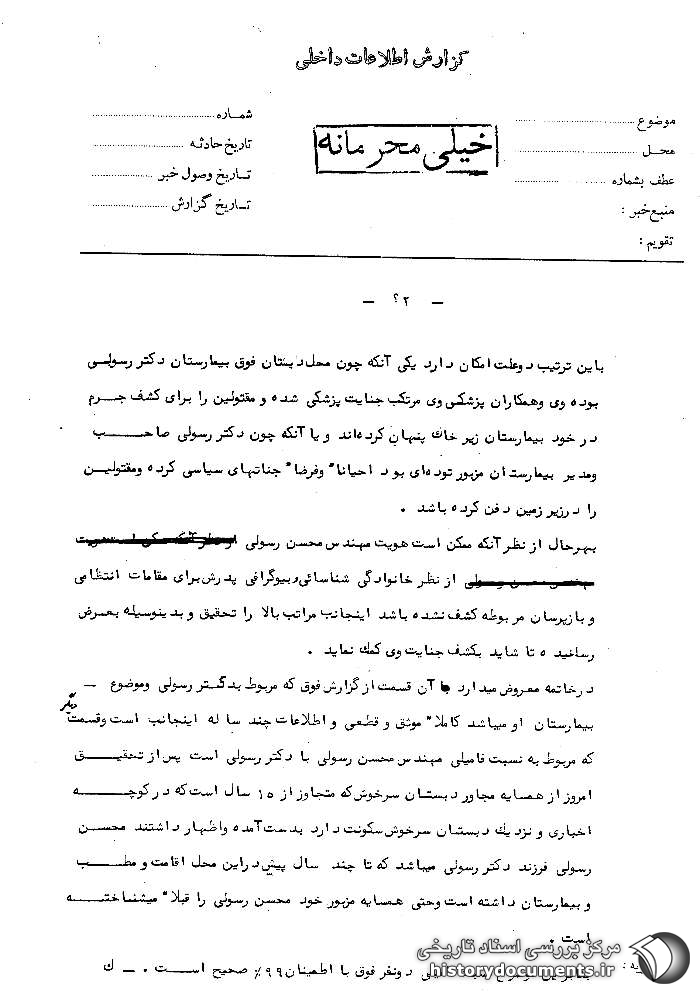 گزارش اطلاعات داخلی
موضوع
محل
عطف بشماره
منبع خبر :
تقویم :
خیلی محرمانه
شماره
تاریخ حادثه
تاریخ وصول خبر
تاریخ گزارش
- ۲ -
باین ترتیب دوعلت امکان دارد یکی آنکه چون محل دبستان فوق بیمارستان دکتر رسولی
بوده وی وهمکاران پزشکی وی مرتکب جنایت پزشکی شده و مقتولین را برای کشف جرم
در خود بیمارستان زیر خاك پنهان کرده‌اند و یا آنکه چون دکتر رسولی صاحب
ومدیر بیمارستان مزبور توده‌ای بود احیانا" وفرضا" جناتهای سیاسی کرده ومقتولین
را درزیر زمین دفن کرده باشد .
بهرحال از نظر آنکه ممکن است هویت مهندس محسن رسولی
از نظر خانوادگی شناسائی وبیوگرافی پدرش برای مقامات انتظامی
و بازپرسان مربوطه کشف نشده باشد اینجانب مراتب بالا را تحقیق و بدینوسیله بعرض
رسانید ه تا شاید بکشف جنایت وی کمك نماید .
درخاتمه معروض میدارد آن قسمت از گزارش فوق که مربوط بدکتر رسولی وموضوع -
بیمارستان او میباشد کاملا" موثق و قطعی و اطلاعات چند سا له اینجانب است وقسمت دیگر
که مربوط به نسبت فامیلی مهندس محسن رسولی با دکتر رسولی است پس از تحقیق
امروز از همسایه مجاور دبستان سرخوش که متجاوز از ۱۵ سال است که در کوچه
اخباری و نزدیك دبستان سرخوش سکونت دارد بدست آمده واظهار داشتند محسن
رسولی فرزند دکتر رسولی میباشد که تا چند سال پیش دراین محل اقامت و مطب
و بیمارستان داشته است وحتی همسایه مزبور خود محسن رسولی را قبلا" میشناخته
است .
دونفر فوق با اطمینان ۹۹٪ صحیح است . - ك
مرکز بررسی اسناد تاریخی
historydocuments.ir